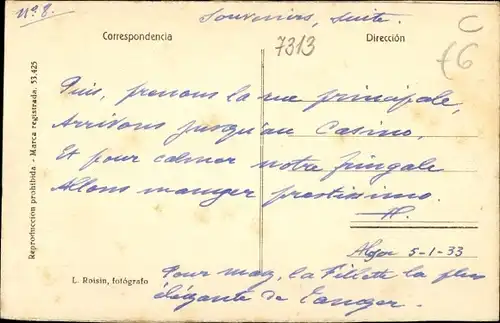 Nº 8.
Souvenirs, suite.
C
Correspondencia
7313
Dirección
Puis, prenons la rue principale,
Arrivons jusqu'au Casino,
Et pour calmer notre fringale
Allons manger prestissimo.
5-1-33
L. Roisin, fotógrafo
Pour la Fillette la plus
élégante de Tanger.
Reproduccion prohibida - Marca registrada. 53.425